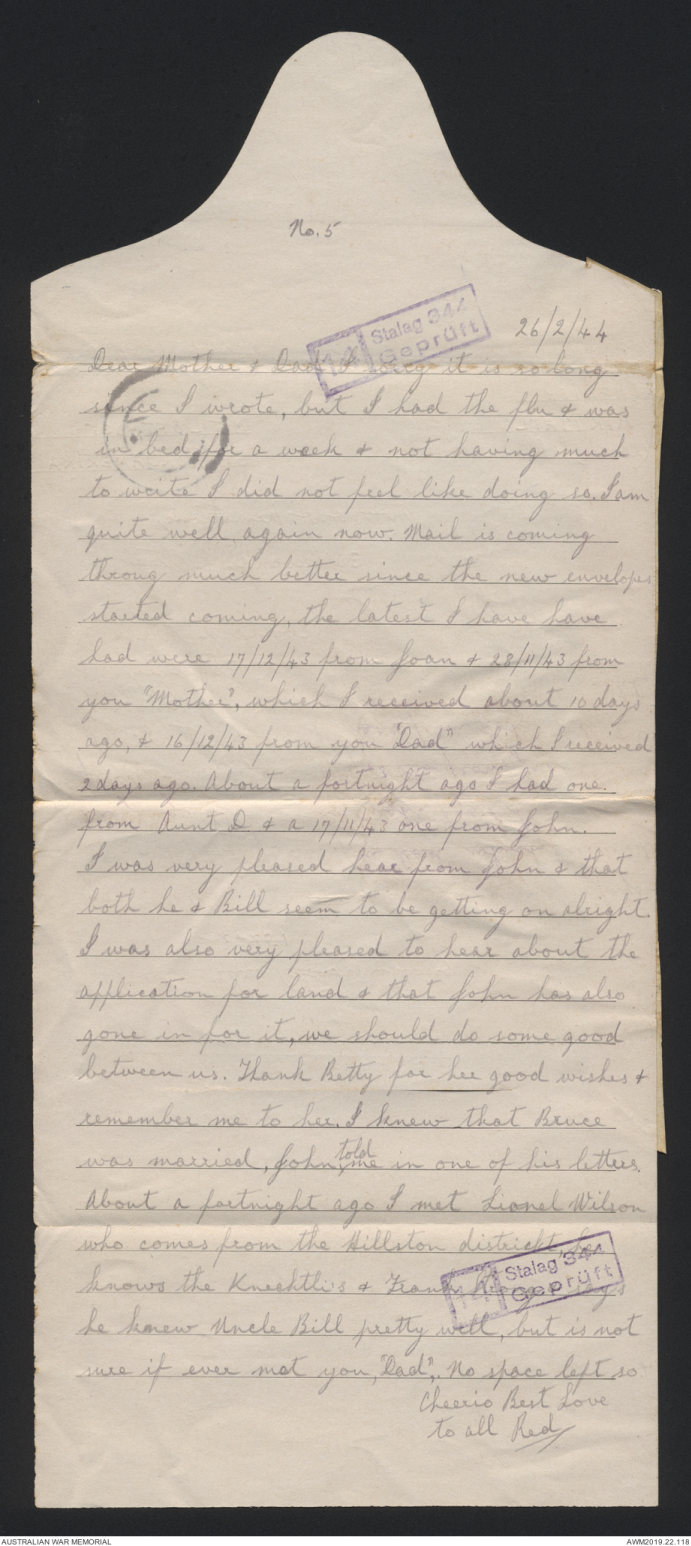 No. 5
14
Stalag 344
Geprüft
26/2/44
Dear Mother & Dad, I sorry it is so long
since I wrote, but I had the flu & was
in bed for a week & not having much
to write I did not feel like doing so. I am
quite well again now. Mail is coming
throug much better since the new envelopes
started coming, the latest I have have
had were 17/12/43 from Joan & 28/11/43 from
you "Mother", which I received about 10 days
ago, & 16/12/43 from you "Dad" which I received
2 days ago. About a fortnight ago I had one
from Aunt D & a 17/11/43 one from John.
I was very pleased hear from John & that
both he & Bill seem to be getting on alright.
I was also very pleased to hear about the
application for land & that John has also
gone in for it, we should do some good
between us. Thank Betty for her good wishes &
remember me to her. I knew that Bruce
was married, John told me in one of his letters.
About a fortnight ago I met Lionel Wilson
who comes from the Hillston district, he
knows the Knechtli's &
14
Stalag 344
Geprüft
he knew Uncle Bill pretty well, but is not
sure if ever met you, "Dad". No space left so
Cheerio Best Love
to all Red
AUSTRALIAN WAR MEMORIAL
AWM2019.22.118